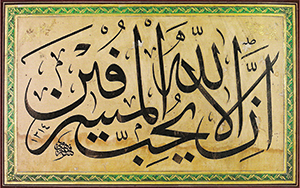 انّ الله لا يحبّ المسرفين